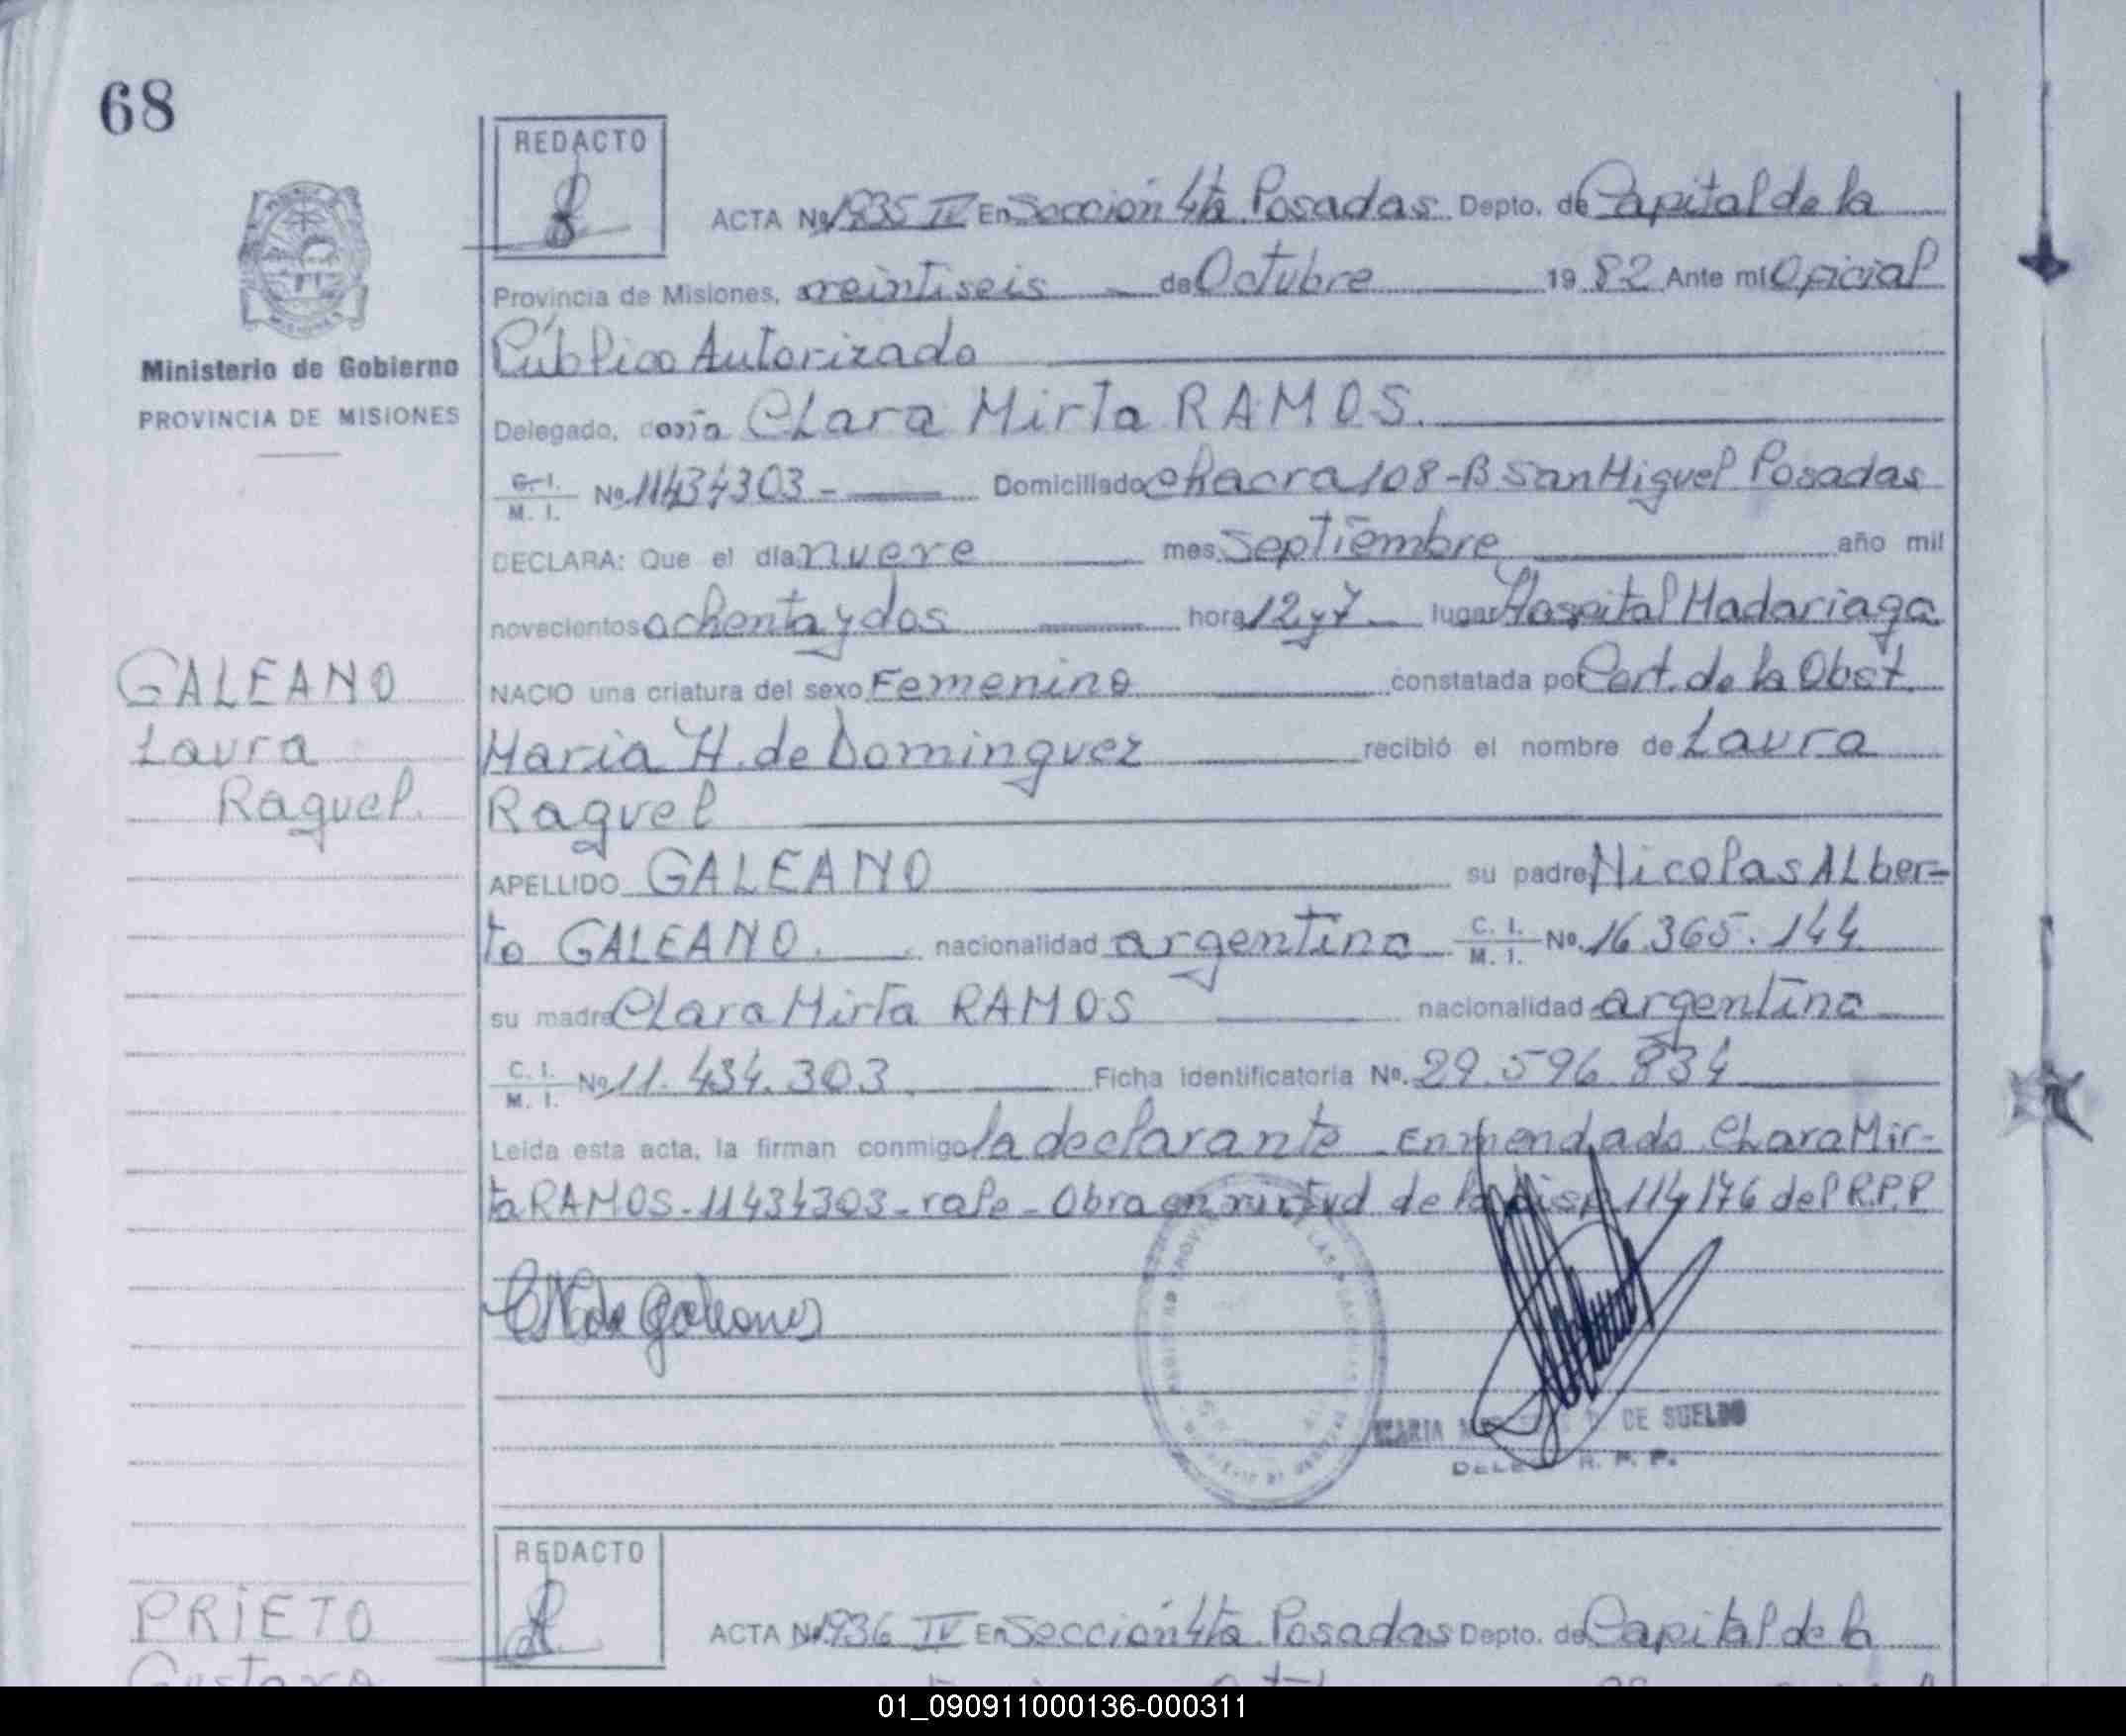 68
REDACTO
ACTA Nº 1935 IV En Sección 4ta Posadas Depto. de Capital de la
Provincia de Misiones, a veintiseis de Octubre 19 82 Ante mi Oficial
Ministerio de Gobierno
PROVINCIA DE MISIONES
Público Autorizado
Delegado, doña Clara Mirta RAMOS.
C. I. M. I. Nº 11434303 - Domiciliado chacra 108-B San Miguel Posadas
DECLARA: Que el día nueve mes Septiembre año mil
novecientos ochenta y dos hora 12 y 7 lugar Hospital Madariaga
GALEANO
Laura
Raquel.
NACIO una criatura del sexo Femenino constatada por Cert. de la Obst.
Maria H. de Dominguez recibió el nombre de Laura
Raquel
APELLIDO GALEANO su padre Nicolas Alber-
to GALEANO. nacionalidad argentina C. I. M. I. Nº 16.365.144
su madre Clara Mirta RAMOS nacionalidad argentina
C. I. M. I. Nº 11.434.303 Ficha identificatoria Nº. 29.596.834
Leida esta acta, la firman conmigo la declarante - Enmendado Clara Mir-
ta RAMOS - 11434303 - vale - Obra en virtud de la disp 114/76 del R.P.P
de Galeano
MARIA DE SUELDO
DELEG R. P. P.
PRIETO
Gustavo
REDACTO
ACTA Nº 1936 IV En Sección 4ta Posadas Depto. de Capital de la
01_090911000136-000311